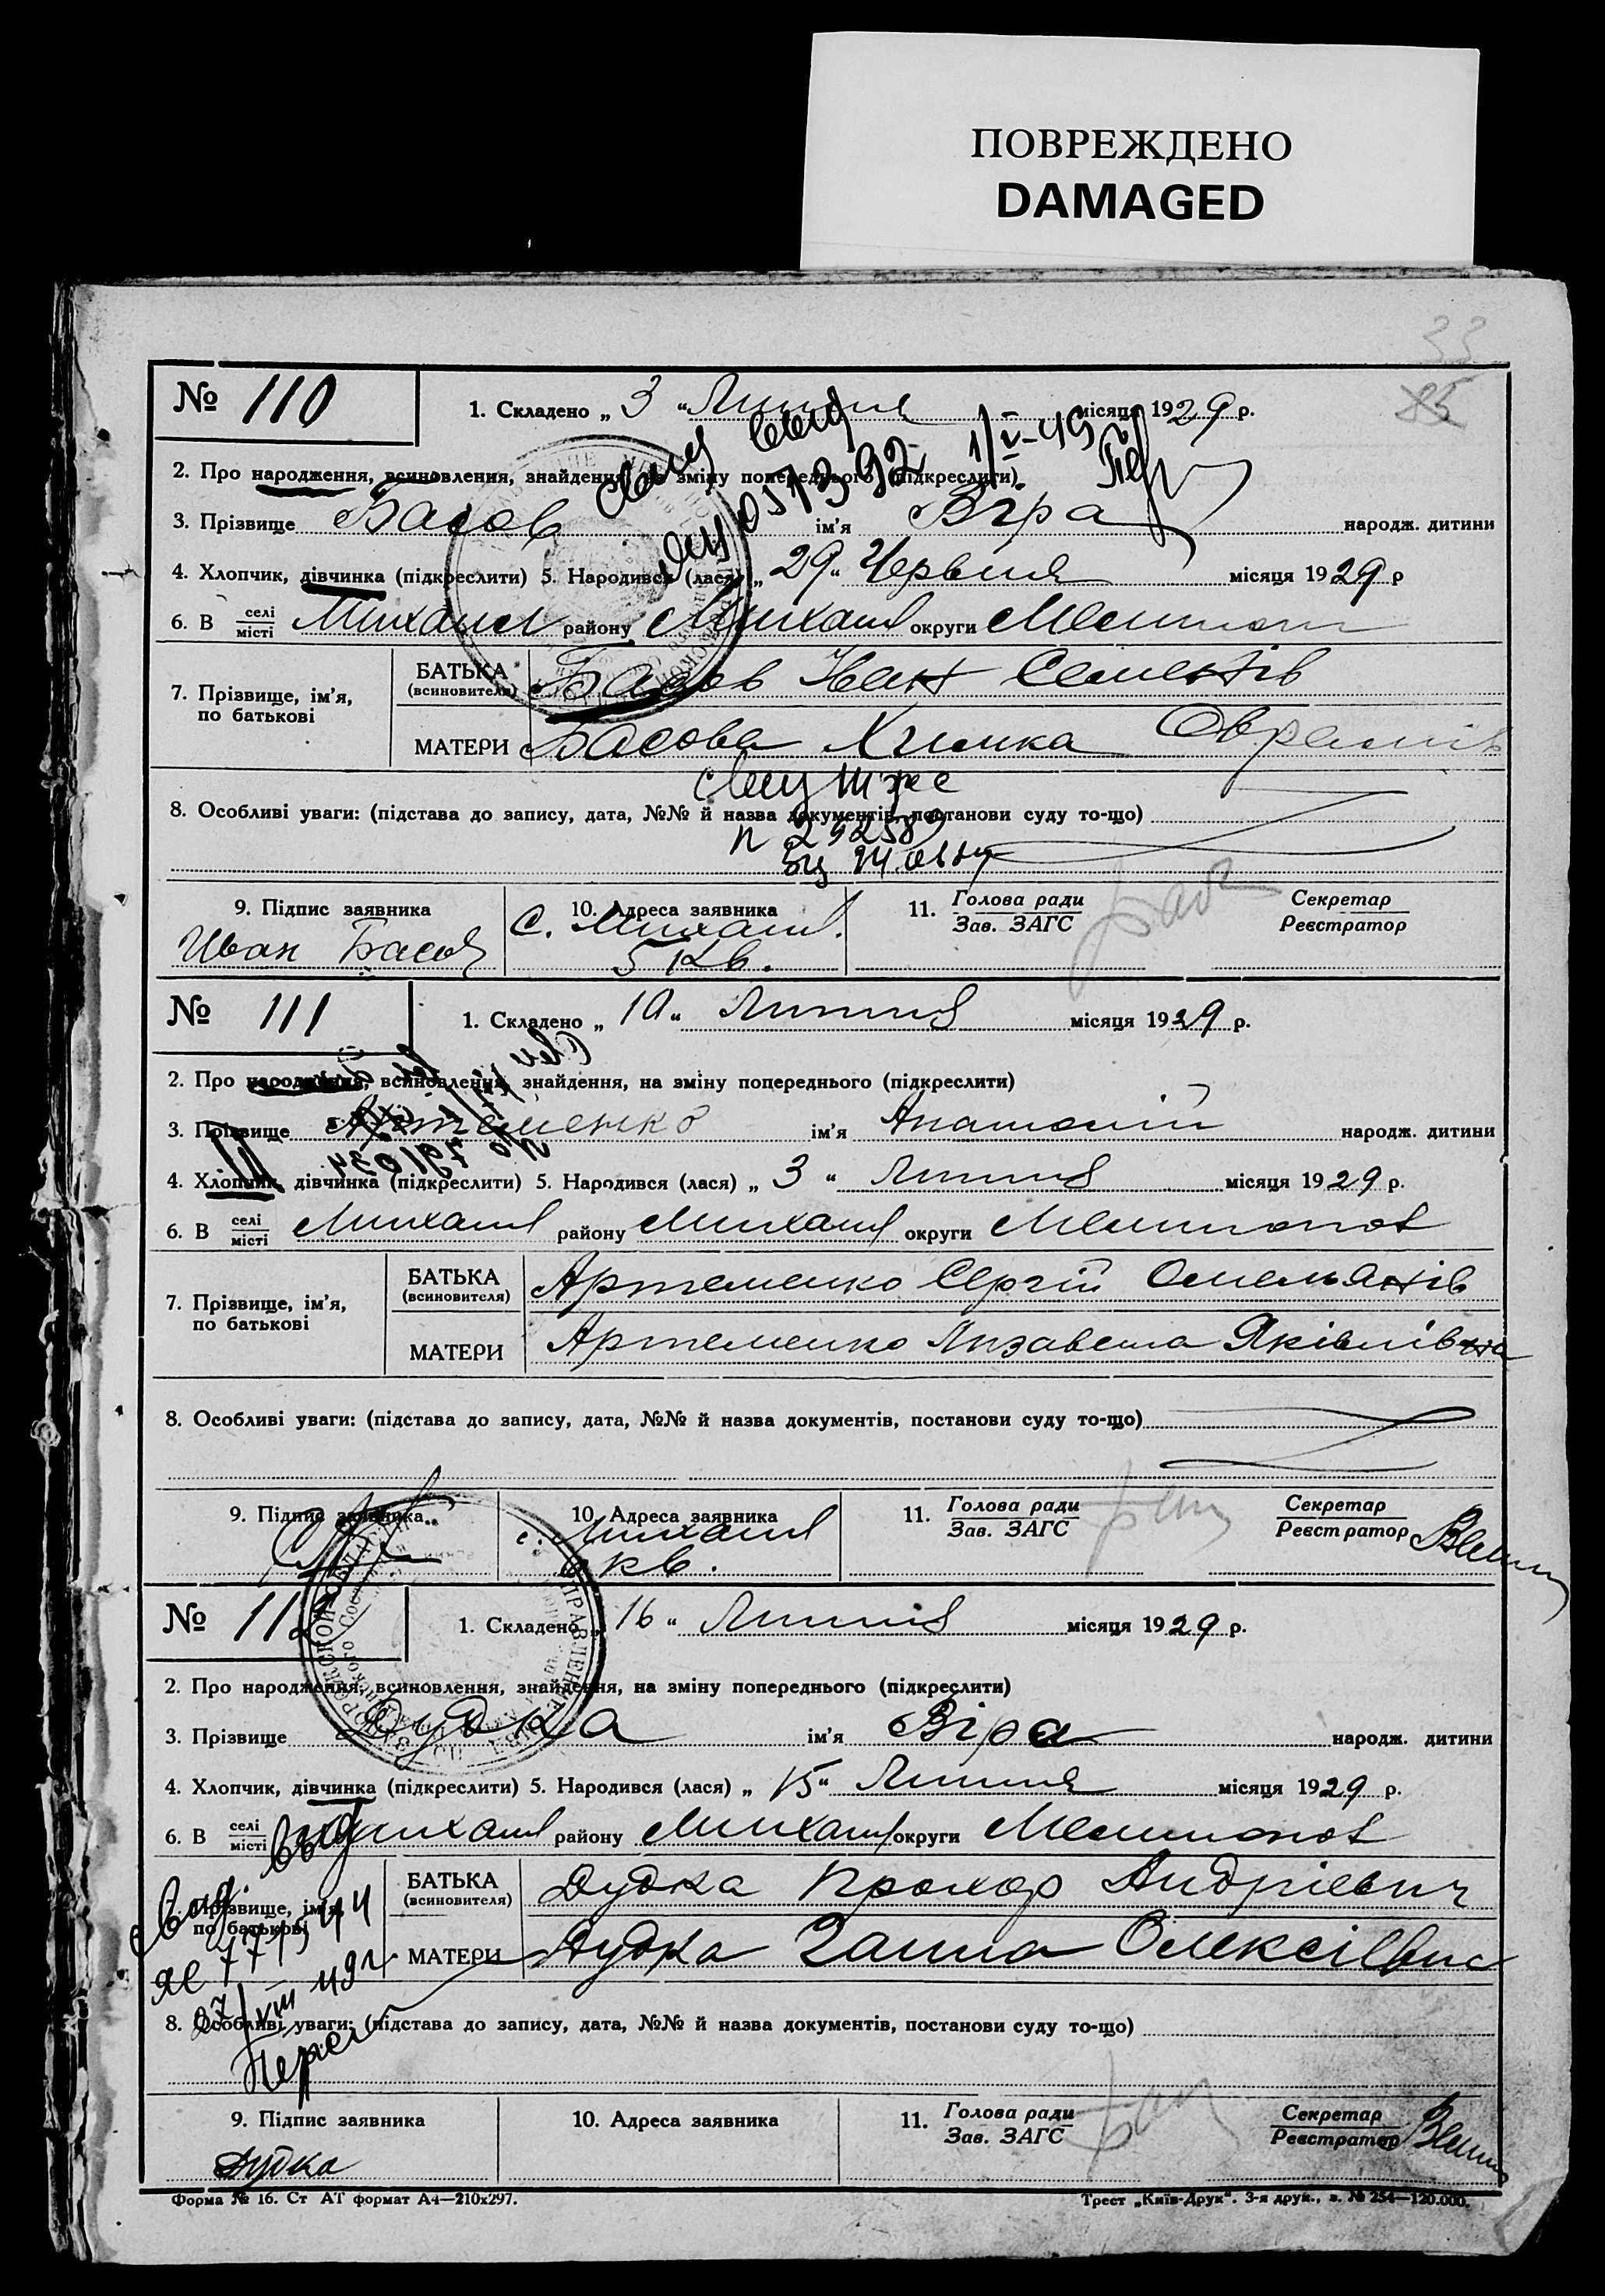 ПОВРЕЖДЕНО
DAMAGED
33
85
№ 110 1. Складено „ 3 “ Липня місяця 1929 р.
2. Про народження, всиновлення, знайдення, на зміну попереднього (підкреслити)
3. Прізвище Басов ім’я Віра народж. дитини
4. Хлопчик, дівчинка (підкреслити) 5. Народився (лася) „ 29 “ Червня місяця 1929 р
6. В селі місті Михайл району Михайл округи Мелитоп
7. Прізвище, ім’я, по батькові БАТЬКА (всиновителя) Басов Иван Семенів
МАТЕРИ Басова Химка Оврамів
8. Особливі уваги: (підстава до запису, дата, №№ й назва документів, постанови суду то-що)
9. Підпис заявника Иван Басов
10. Адреса заявника с. Михайл. 5 кв.
11. Голова ради Зав. ЗАГС Секретар Реєстратор
№ 111 1. Складено „ 10 “ Липня місяця 1929 р.
2. Про народження, всиновлення, знайдення, на зміну попереднього (підкреслити)
3. Прізвище Артеменко ім’я Анатолій народж. дитини
4. Хлопчик, дівчинка (підкреслити) 5. Народився (лася) „ 3 “ Липня місяця 1929 р.
6. В селі місті Михайл району Михайл округи Мелитопол
7. Прізвище, ім’я, по батькові БАТЬКА (всиновителя) Артеменко Сергій Омелянів
МАТЕРИ Артеменко Лизавета Яківлівна
8. Особливі уваги: (підстава до запису, дата, №№ й назва документів, постанови суду то-що)
9. Підпис заявника
10. Адреса заявника с. Михайл кв.
11. Голова ради Зав. ЗАГС Секретар Реєстратор
№ 112 1. Складено „ 16 “ Липня місяця 1929 р.
2. Про народження, всиновлення, знайдення, на зміну попереднього (підкреслити)
3. Прізвище Дудка ім’я Віра народж. дитини
4. Хлопчик, дівчинка (підкреслити) 5. Народився (лася) „ 15 “ Липня місяця 1929 р.
6. В селі місті Михайл району Михайл округи Мелитопол
7. Прізвище, ім’я, по батькові БАТЬКА (всиновителя) Дудка Прохор Андрієвич
МАТЕРИ Дудка Ганна Олексієвна
8. Особливі уваги: (підстава до запису, дата, №№ й назва документів, постанови суду то-що)
9. Підпис заявника Дудка
10. Адреса заявника
11. Голова ради Зав. ЗАГС Секретар Реєстратор
Форма № 16. Ст АТ формат А4—210х297.
Трест „Київ-Друк“. 3-я друк., з. № 254—120.000.